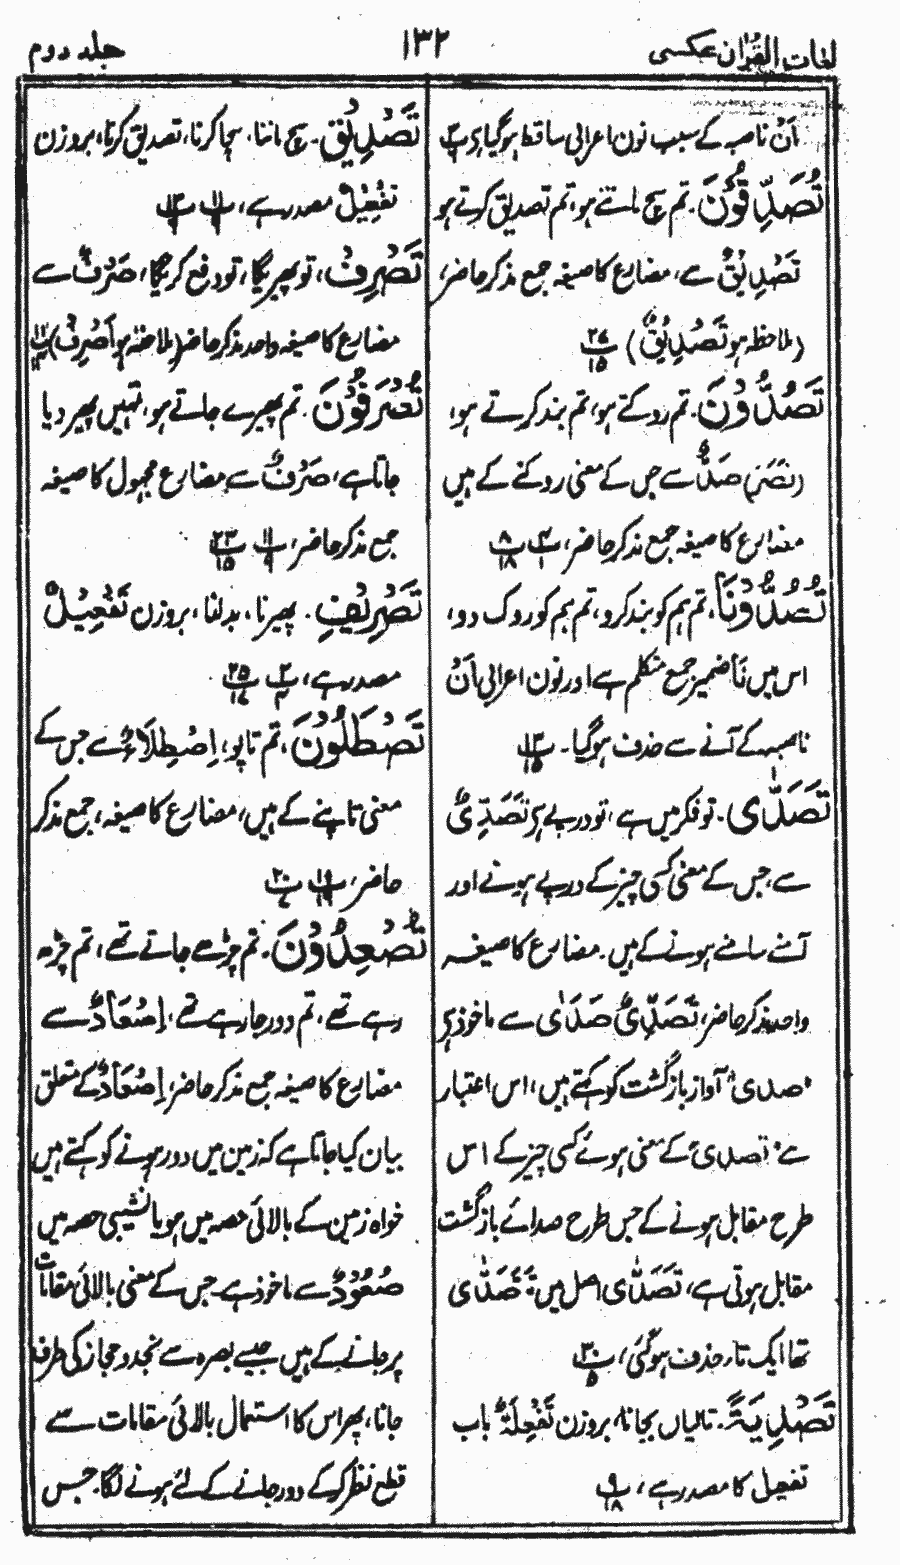 لغات القرآن عکسی
۱۳۲
جلد دوم
اَنْ ناصبہ کے سبب نون اعرابی ساقط ہوگیا ہے، پ۳
تُصَدِّقُوْنَ۔ تم سچ مانتے ہو، تم تصدیق کرتے ہو
تَصْدِیْقٌ سے، مضارع کا صیغہ جمع مذکر حاضر،
(ملاحظہ ہو تَصْدِیْقٌ) ۲۷/۱۵
تَصُدُّوْنَ۔ تم روکتے ہو، تم بند کرتے ہو،
(نَصَرَ) صَدٌّ سے جس کے معنی روکنے کے ہیں
مضارع کا صیغہ جمع مذکر حاضر، پ۴/۱ پ۸/۱۸
تَصُدُّوْنَا، تم ہم کو بند کرو، تم ہم کو روک دو،
اس میں نَا ضمیر جمع متکلم ہے اور نون اعرابی اَنْ
ناصبہ کے آنے سے حذف ہوگیا۔ پ۱۳/۱۵
تَصَدّٰی۔ تو فکر میں ہے، تو درپے ہے تَصَدِّیٌ
سے، جس کے معنی کسی چیز کے درپے ہونے اور
آمنے سامنے ہونے کے ہیں۔ مضارع کا صیغہ
واحد مذکر حاضر، تَصَدِّیٌ صَدَاٰی سے ماخوذ ہے
"صدی" آواز بازگشت کو کہتے ہیں، اس اعتبار
سے "تصدی" کے معنی ہوئے کسی چیز کے اس
طرح مقابل ہونے کے جس طرح صدائے بازگشت
مقابل ہوتی ہے، تَصَدّٰی اصل میں تَتَصَدّٰی
تھا ایک تاء حذف ہوگئی، پ۳۰/۵
تَصْدِیَۃً۔ تالیاں بجانا، بروزن تَفْعِلَۃٌ باب
تفعیل کا مصدر ہے، پ۹/۱۸
تَصْدِیْقَ۔ سچ ماننا، سچا کرنا، تصدیق کرنا، بروزن
تَفْعِیْلٌ مصدر ہے، پ۱۱ پ۱۳
تَصْرِفْ، تو پھیریگا، تو دفع کریگا، صَرْفٌ سے
مضارع کا صیغہ واحد مذکر حاضر (ملاحظہ ہو اَصْرِفُ) پ۱۲
تُصْرَفُوْنَ۔ تم پھیرے جاتے ہو، تمہیں پھیر دیا
جاتا ہے، صَرْفٌ سے مضارع مجہول کا صیغہ
جمع مذکر حاضر، پ۱۱/۹ پ۲۳/۱۵
تَصْرِیْفِ۔ پھیرنا، بدلنا، بروزن تَفْعِیْلٌ
مصدر ہے، پ۲/۴ پ۲۵/۱۷
تَصْطَلُوْنَ، تم تاپو، اِصْطِلَاءٌ سے جس کے
معنی تاپنے کے ہیں، مضارع کا صیغہ، جمع مذکر
حاضر، پ۱۹ پ۲۰
تُصْعِدُوْنَ۔ تم چڑھے جاتے تھے، تم چڑھ
رہے تھے، تم دور جا رہے تھے، اِصْعَادٌ سے
مضارع کا صیغہ جمع مذکر حاضر، اِصْعَادٌ کے متعلق
بیان کیا جاتا ہے کہ زمین میں دور ہونے کو کہتے ہیں
خواہ زمین کے بالائی حصہ میں ہو یا نشیبی حصہ میں
صُعُوْدٌ سے ماخوذ ہے۔ جس کے معنی بالائی مقامات
پر جانے کے ہیں جیسے بصرہ سے نجد و حجاز کی طرف
جانا، پھر اس کا استعمال بالائی مقامات سے
قطع نظر کر کے دور جانے کے لئے ہونے لگا۔ جس